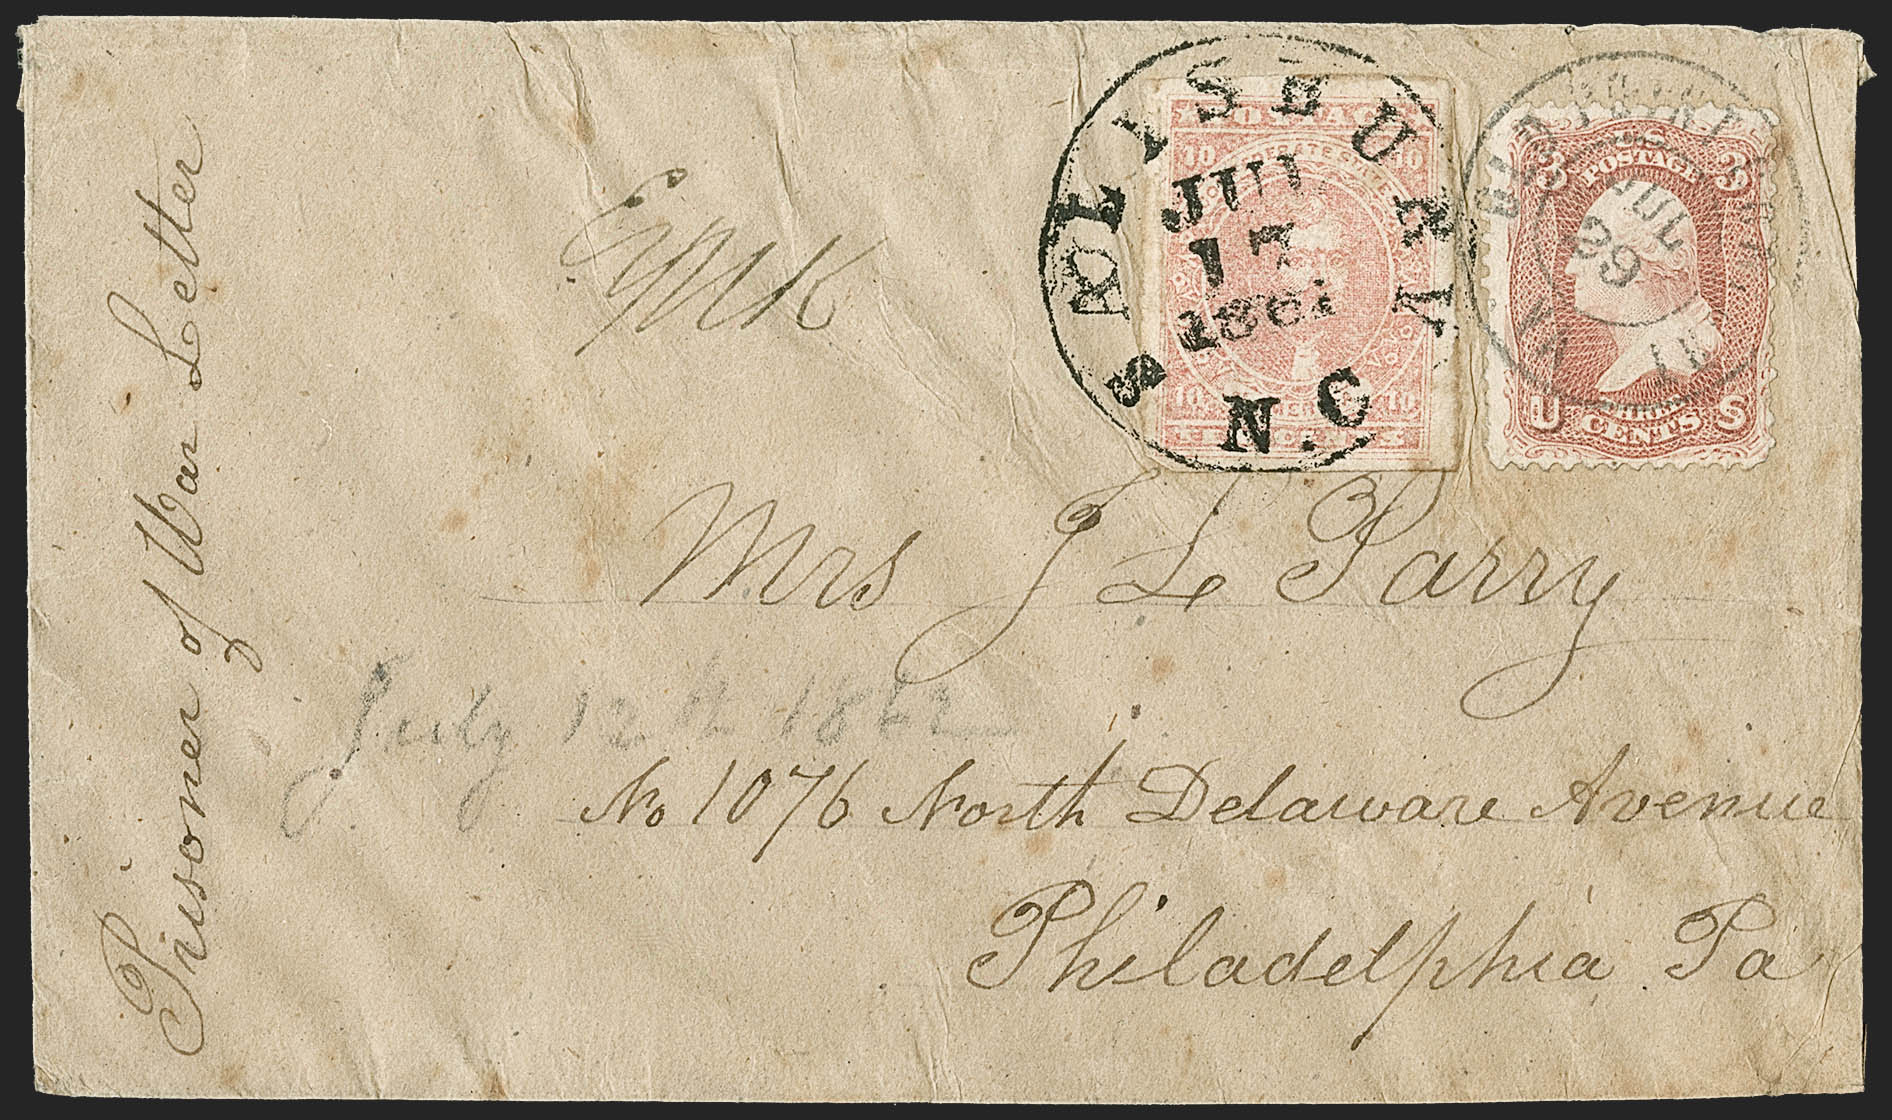 Prisoner of War Letter
SALISBURY
JUL
17
1861
N.C
POSTAGE
10 10
10 10
JUL
29
U.S.
3 3
POSTAGE
U S
CENTS
Mrs J L Parry
July 12th 1862
No 1076 North Delaware Avenue
Philadelphia Pa